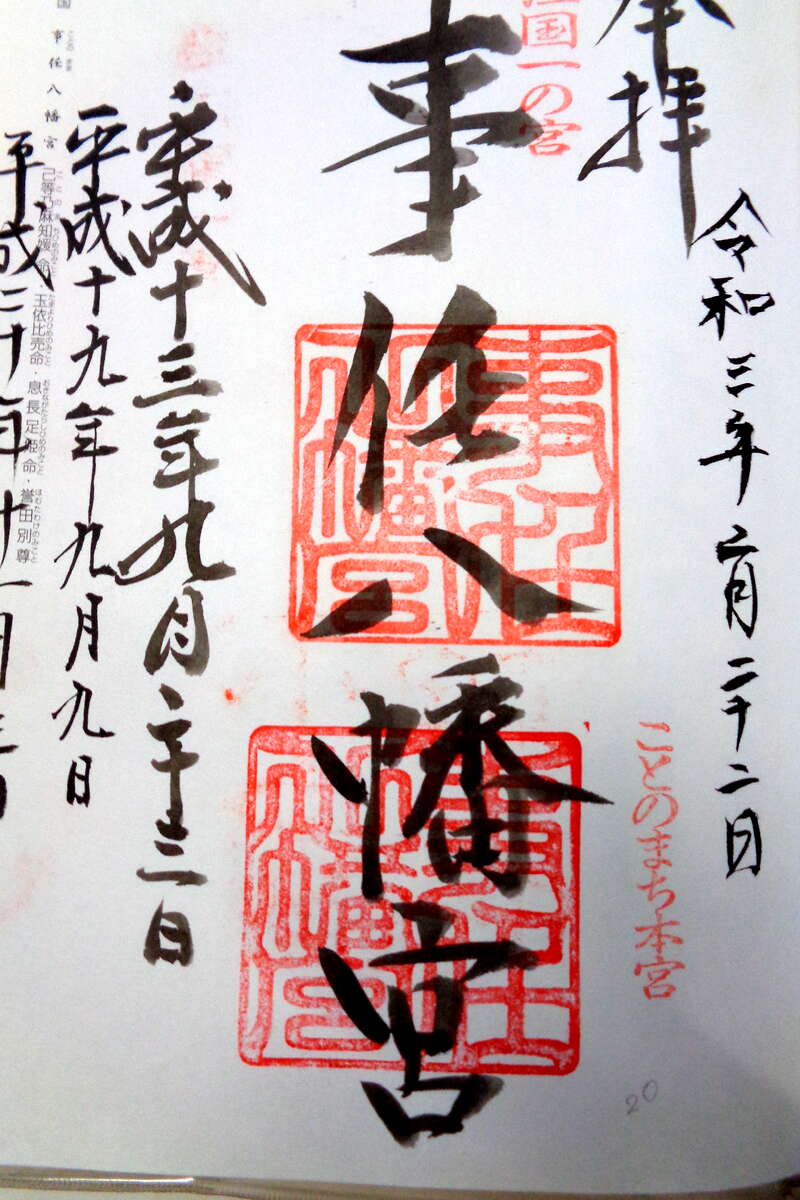 奉拝
令和三年二月二十二日
国一の宮
ことのまち本宮
事任八幡宮
事任
八幡宮
事任
八幡宮
平成十三年九月二十三日
平成十九年九月九日
国 事任八幡宮
己等乃麻知媛命・玉依比売命・息長足姫命・誉田別尊
平成二十八年十一月三日
20